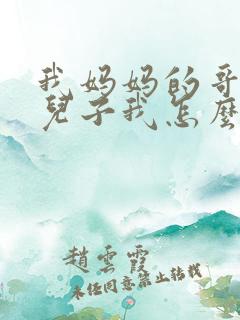 我妈妈的哥
兒子我怎麼
趙雲霞
未经同意禁止转载